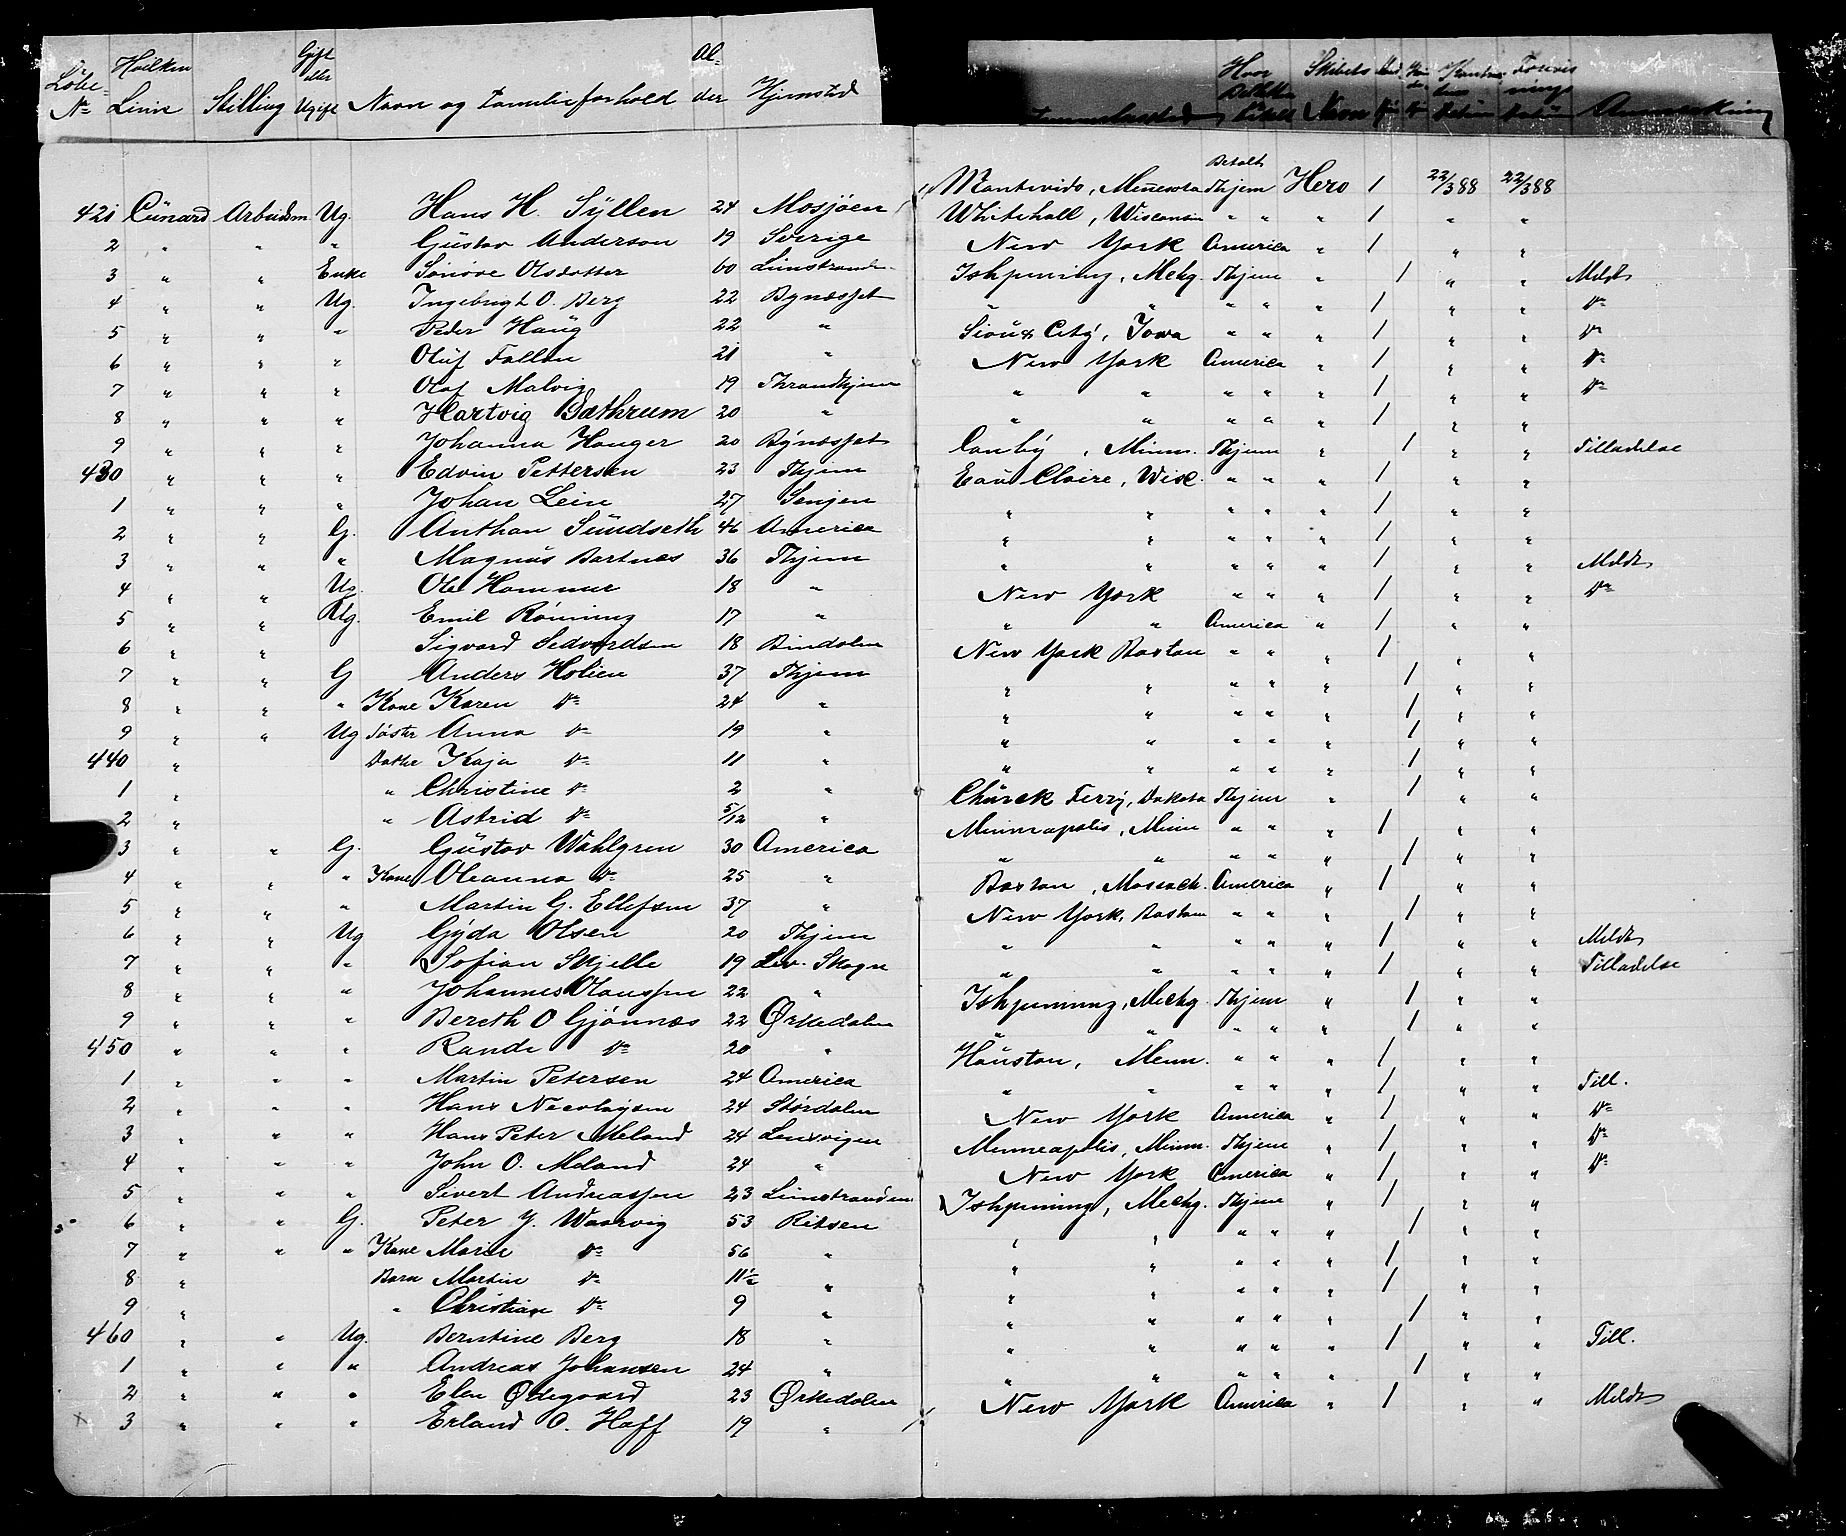 Löbe- Nº Hvilken Linie Stilling Gift eller Ugift Navn og Familieforhold Alder Hjemsted
421 Cunard Arbeidsm Ug. Hans H. Syllen 24 Mosjöen
2 " " " Gustav Anderson 19 Sverige
3 " " Enke Sönöve Olsdatter 60 Lenstranden
4 " " Ug. Ingebrigt O. Berg 22 Bynæsset
5 " " " Peder Haug 22 "
6 " " " Oluf Fallan 21 "
7 " " " Olaf Malvig 19 Throndhjem
8 " " " Hartvig Dathrum 20 "
9 " " " Johanna Hanger 20 Bynæsset
430 " " " Edvin Pettersen 23 Thjem
1 " " " Johan Lein 27 Senjen
2 " " G. Anthon Sundseth 46 America
3 " " " Magnus Bartnes 36 Thjem
4 " " Ug. Ole Hammer 18 "
5 " " Ug. Emil Rönning 17 "
6 " " Sigvard Sedvardsen 18 Bindalen
7 " " G Anders Holien 37 Thjem
8 " " " Kone Karen Do 24 "
9 " " Ug Söster Anna Do 19 "
440 " Datter Kaja Do 11 "
1 " " Christine Do 2 "
2 " " Astrid Do 5/12 "
3 " " G. Gustav Wahlgren 30 America
4 " " " Kone Oleanna Do 25 "
5 " " " Martin G. Ellefsen 37 "
6 " " Ug Gyda Olsen 20 Thjem
7 " " " Sofian Skjelle 19 Lev. Skogn
8 " " " Johannes Olaussen 22 "
9 " " " Bereth O Gjönnæs 22 Ørkedalen
450 " " " Rande Do 20 "
1 " " " Martin Petersen 24 America
2 " " " Hans Necolaysen 24 Stördalen
3 " " " Hans Peter Meland 24 Lensvigen
4 " " " John O. Meland 24 "
5 " " " Sivert Andreassen 23 Lenstranden
6 " " G. Peter J. Waarvig 53 Ritsen
7 " " " Kone Marie Do 56 "
8 " Barn Martin Do 11½ "
9 " " Christian Do 9 "
460 " " Ug. Berntine Berg 18 "
1 " " " Andreas Johansen 24 "
2 " " " Elen Ødegaard 23 Ørkedalen
3 " " " Erland O. Hoff 19 "
Hvor Billetten Skibets Navn Anmerkning
Montevido, Minesota Betalt Thjem Hero 1 22/3 88 22/3 88
Whitehall, Wisconsin " " " 1 " "
New York America " 1 " "
Ishpeming, Mchg. Thjem " 1 " " Meldt
" " " " " 1 " " Do
Sioux City, Iowa " " " 1 " " Do
New York America " 1 " " Do
" " " " " 1 " " Do
" " " " " 1 " "
Canby, Minn. Thjem " 1 " " Tilladelse
Eau Claire, Wisc. " " " 1 " "
" " " " " 1 " "
" " " " " 1 " "
" " " " " 1 " " Meldt
New York " " " 1 " " Do
" " America " 1 " "
New York Boston " " " 1 " "
" " " " " 1 " "
" " " " " 1 " "
" " " " " 1 " "
" " " " " 1 " "
Church Ferry, Dakota Thjem " 1 " "
Minneapolis, Minn " " " 1 " "
" " " " " 1 " "
Boston, Massach. America " 1 " "
New York, Boston " " " 1 " "
" " " " " 1 " " Meldt
" " " " " 1 " " Tilladelse
Ishpeming, Mechg. Thjem " 1 " "
" " " " " 1 " "
Houston, Menn. " " " 1 " "
" " " " " 1 " " Till.
New York America " 1 " " Do
Menneapolis, Minn. Thjem " 1 " " Do
New York America " 1 " " Do
Ishpeming, Mechg. Thjem " 1 " "
" " " " " 1 " "
" " " " " 1 " "
" " " " " 1 " "
" " " " " 1 " "
" " " " " 1 " " Till.
" " " " " 1 " "
New York America " 1 " " Meldt